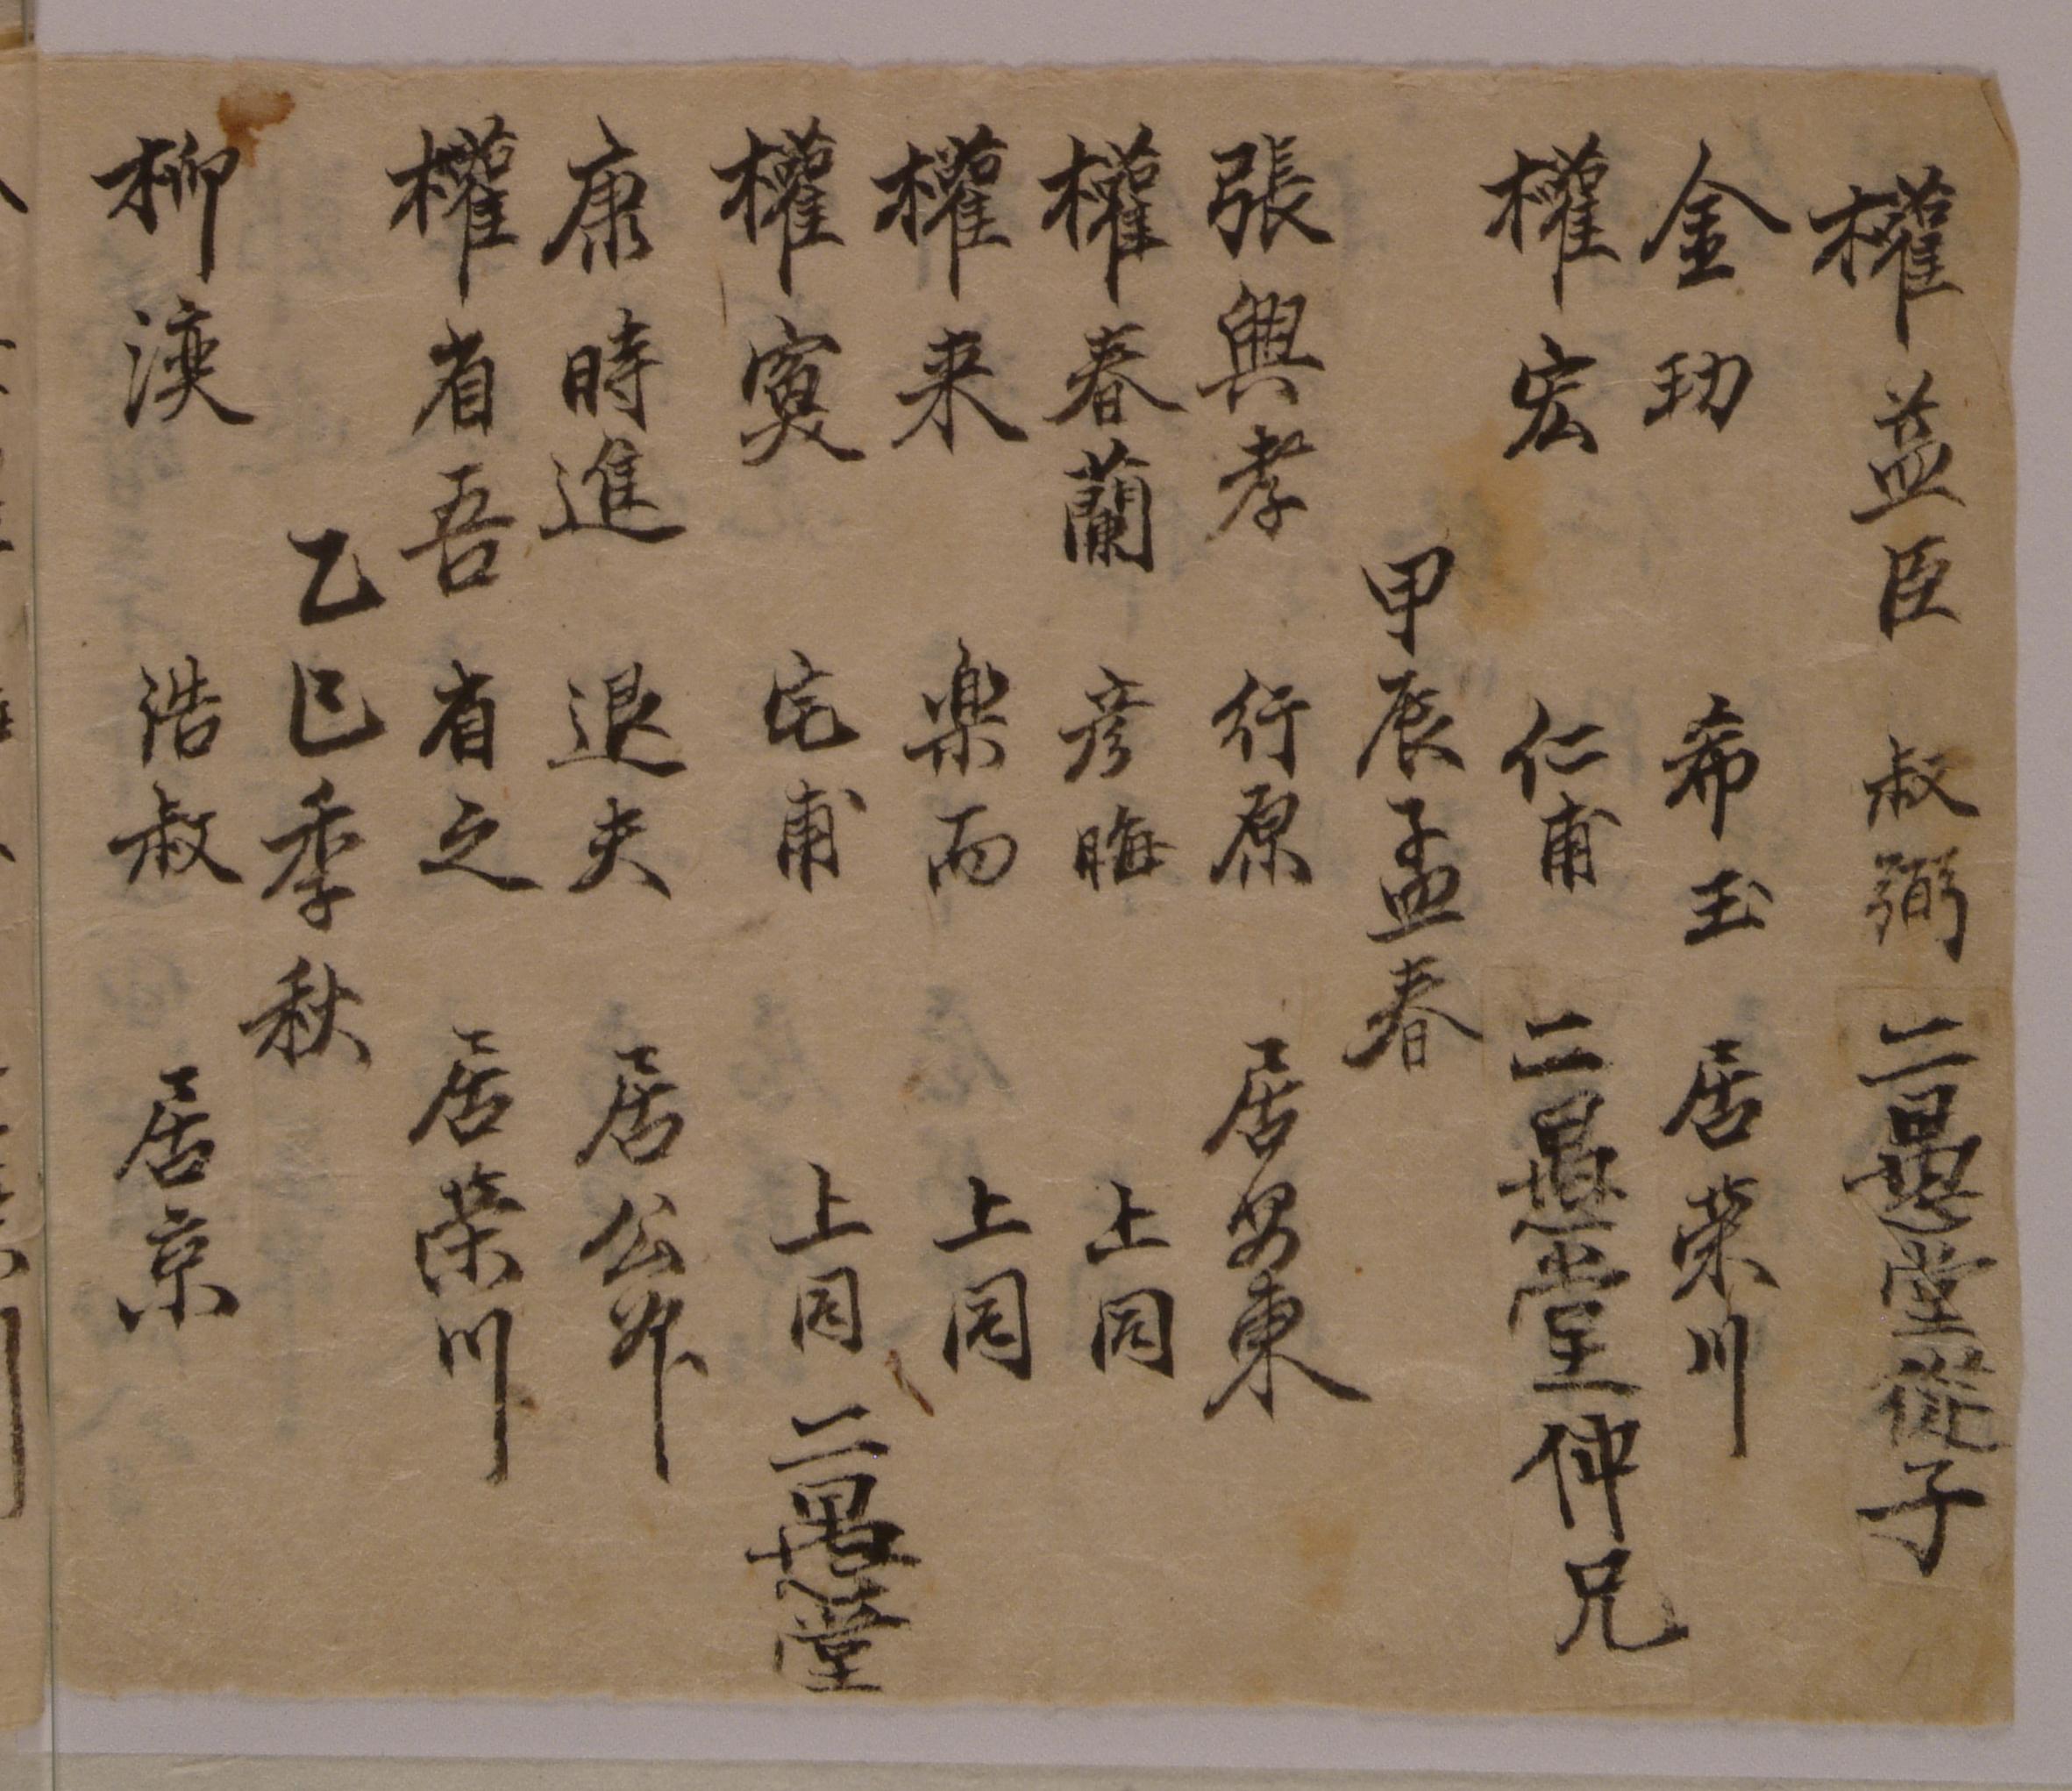 權益臣 叔弼 二愚堂從子
金玏 希玉 居荣川
權宏 仁甫 二愚堂仲兄
甲辰孟春
張興孝 行原 居安東
權春蘭 彦晦 上同
權来 楽而 上同
權寏 宅甫 上同 二愚堂
康時進 退夫 居公州
權省吾 省之 居荣川
乙巳季秋
柳渙 浩叔 居京